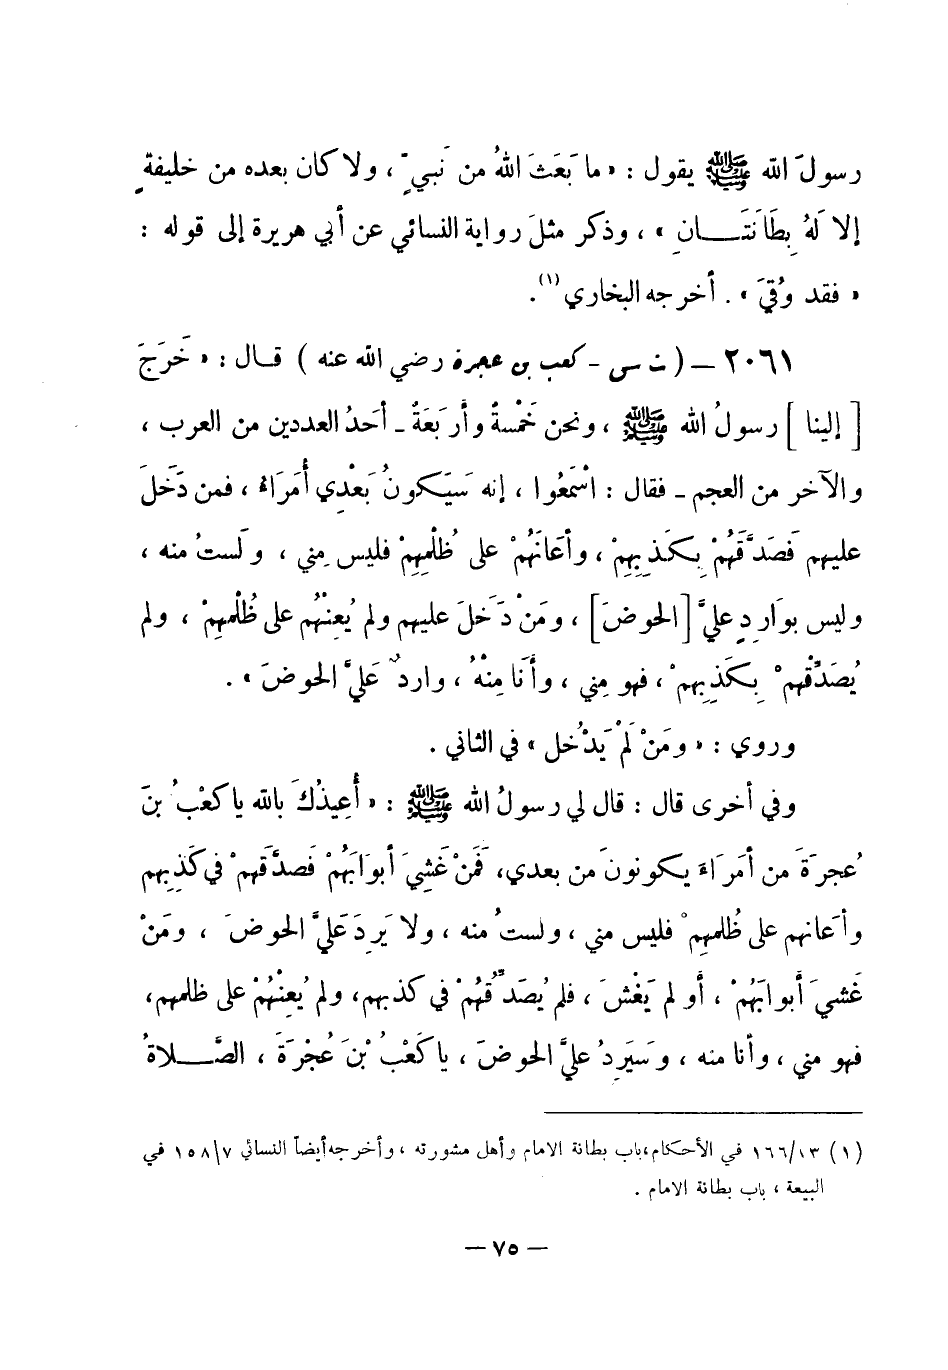 رسولَ الله ﷺ يقول : « ما بَعَثَ اللهُ من نَبيٍّ ، ولا كان بعده من خليفةٍ
إلا لَهُ بِطَانَتَـــانِ » ، وذكر مثلَ رواية النسائي عن أبي هريرة إلى قوله :
« فقد وُقيَ » . أخرجه البخاري (١).
٢٠٦١ – ( ت س - كعب بن عجرة رضي الله عنه ) قـال : « خَرَجَ
[ إلينا ] رسولُ الله ﷺ ، ونحن خَمْسةٌ وأربَعَةٌ - أحَدُ العددين من العرب ،
والآخر من العجم - فقال : اسْمَعُوا ، إنه سَيَكونُ بَعْدِي أُمَرَاءُ ، فمن دَخَلَ
عليهم فَصَدَّقَهُمْ بِكَذِبِهِمْ ، وأعَانَهُمْ على ظُلْمِهِمْ فليس مِني ، ولَستُ منه ،
وليس بوَارِدٍ عليَّ [ الحوضَ ] ، ومَنْ دَخَلَ عليهم ولم يُعِنْهُم على ظُلْمهِمْ ، ولم
يُصَدِّقْهمْ بِكَذِبِهمْ ، فهو مِني ، وأَنا مِنْهُ ، واردٌ عَليَّ الحوضَ » .
وروي : « ومَنْ لَمْ يَدْخل » في الثاني .
وفي أخرى قال : قال لي رسولُ الله ﷺ : « أُعِيذُكَ بالله يا كعْبُ بنَ
عُجرَةَ من أمَرَاءَ يكونونَ من بعدي، فَمَنْ غَشِيَ أبوَابَهُمْ فَصدَّقهمْ في كَذِبِهم
وأعَانهم على ظُلمهِمْ فليس مني ، ولستُ منه ، ولا يَرِدَ عَليَّ الحوضَ ، ومَنْ
غَشيَ أبوابَهُمْ ، أو لم يَغْشَ ، فلم يُصَدِّقْهُمْ في كذبهم، ولم يُعِنْهُمْ على ظلمهم،
فهو مني ، وأنا منه ، وسَيَرِدُ عليَّ الحوضَ ، يا كَعْبُ بْنَ عُجْرَةَ ، الصَّـــلاةُ
(١) ١٦٦/١٣ في الأحكام،باب بطانة الامام وأهل مشورته ، وأخرجه أيضاً النسائي ١٥٨/٧ في
البيعة ، باب بطانة الامام .
– ٧٥ –